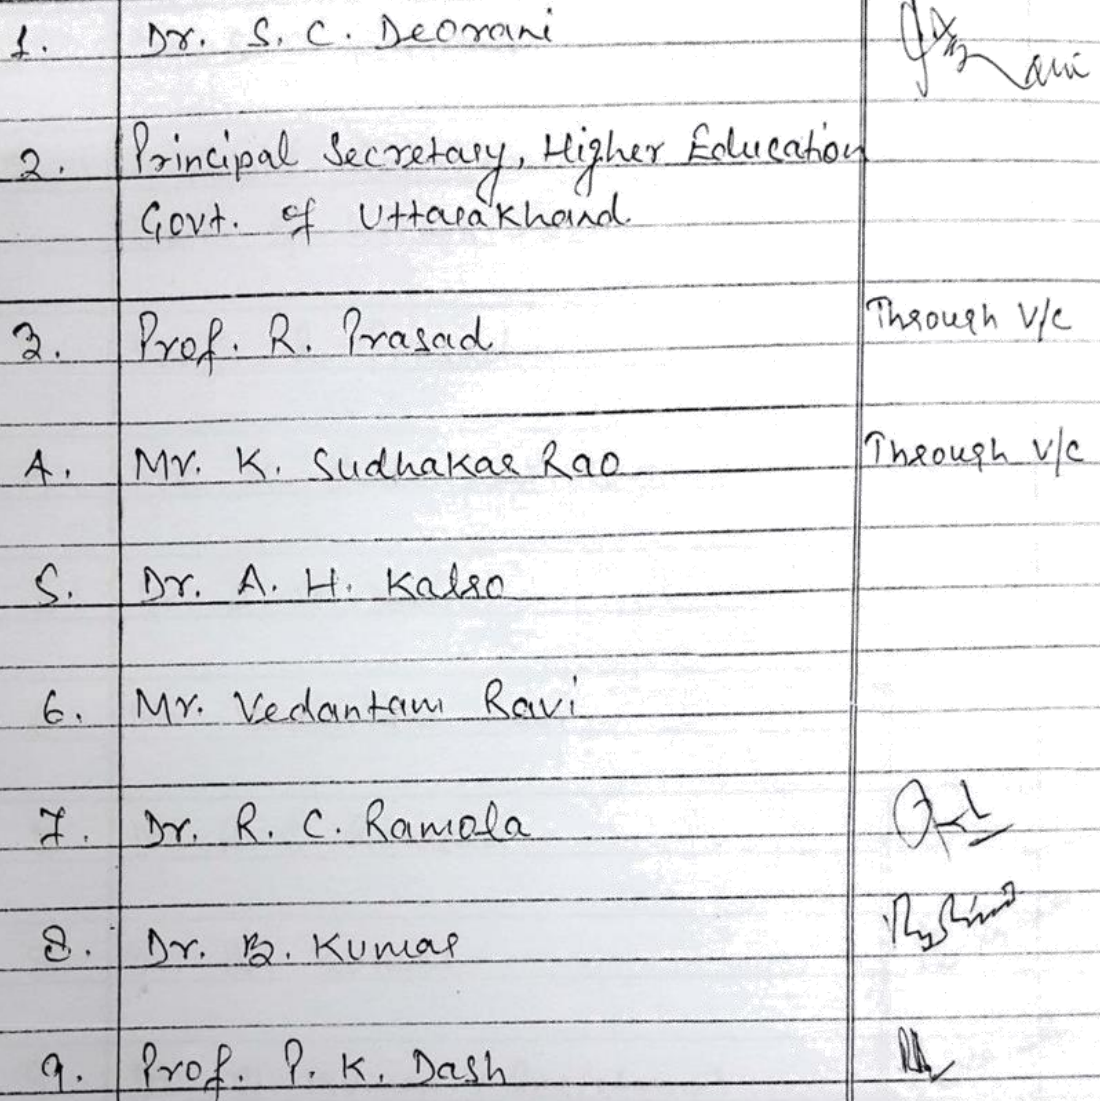 1. Dr. S. C. Deorani
2. Principal Secretary, Higher Education
Govt. of Uttarakhand
3. Prof. R. Prasad Through V/C
4. Mr. K. Sudhakar Rao Through V/C
5. Dr. A. H. Kalro
6. Mr. Vedantam Ravi
7. Dr. R. C. Ramola
8. Dr. B. Kumar
9. Prof. P. K. Dash